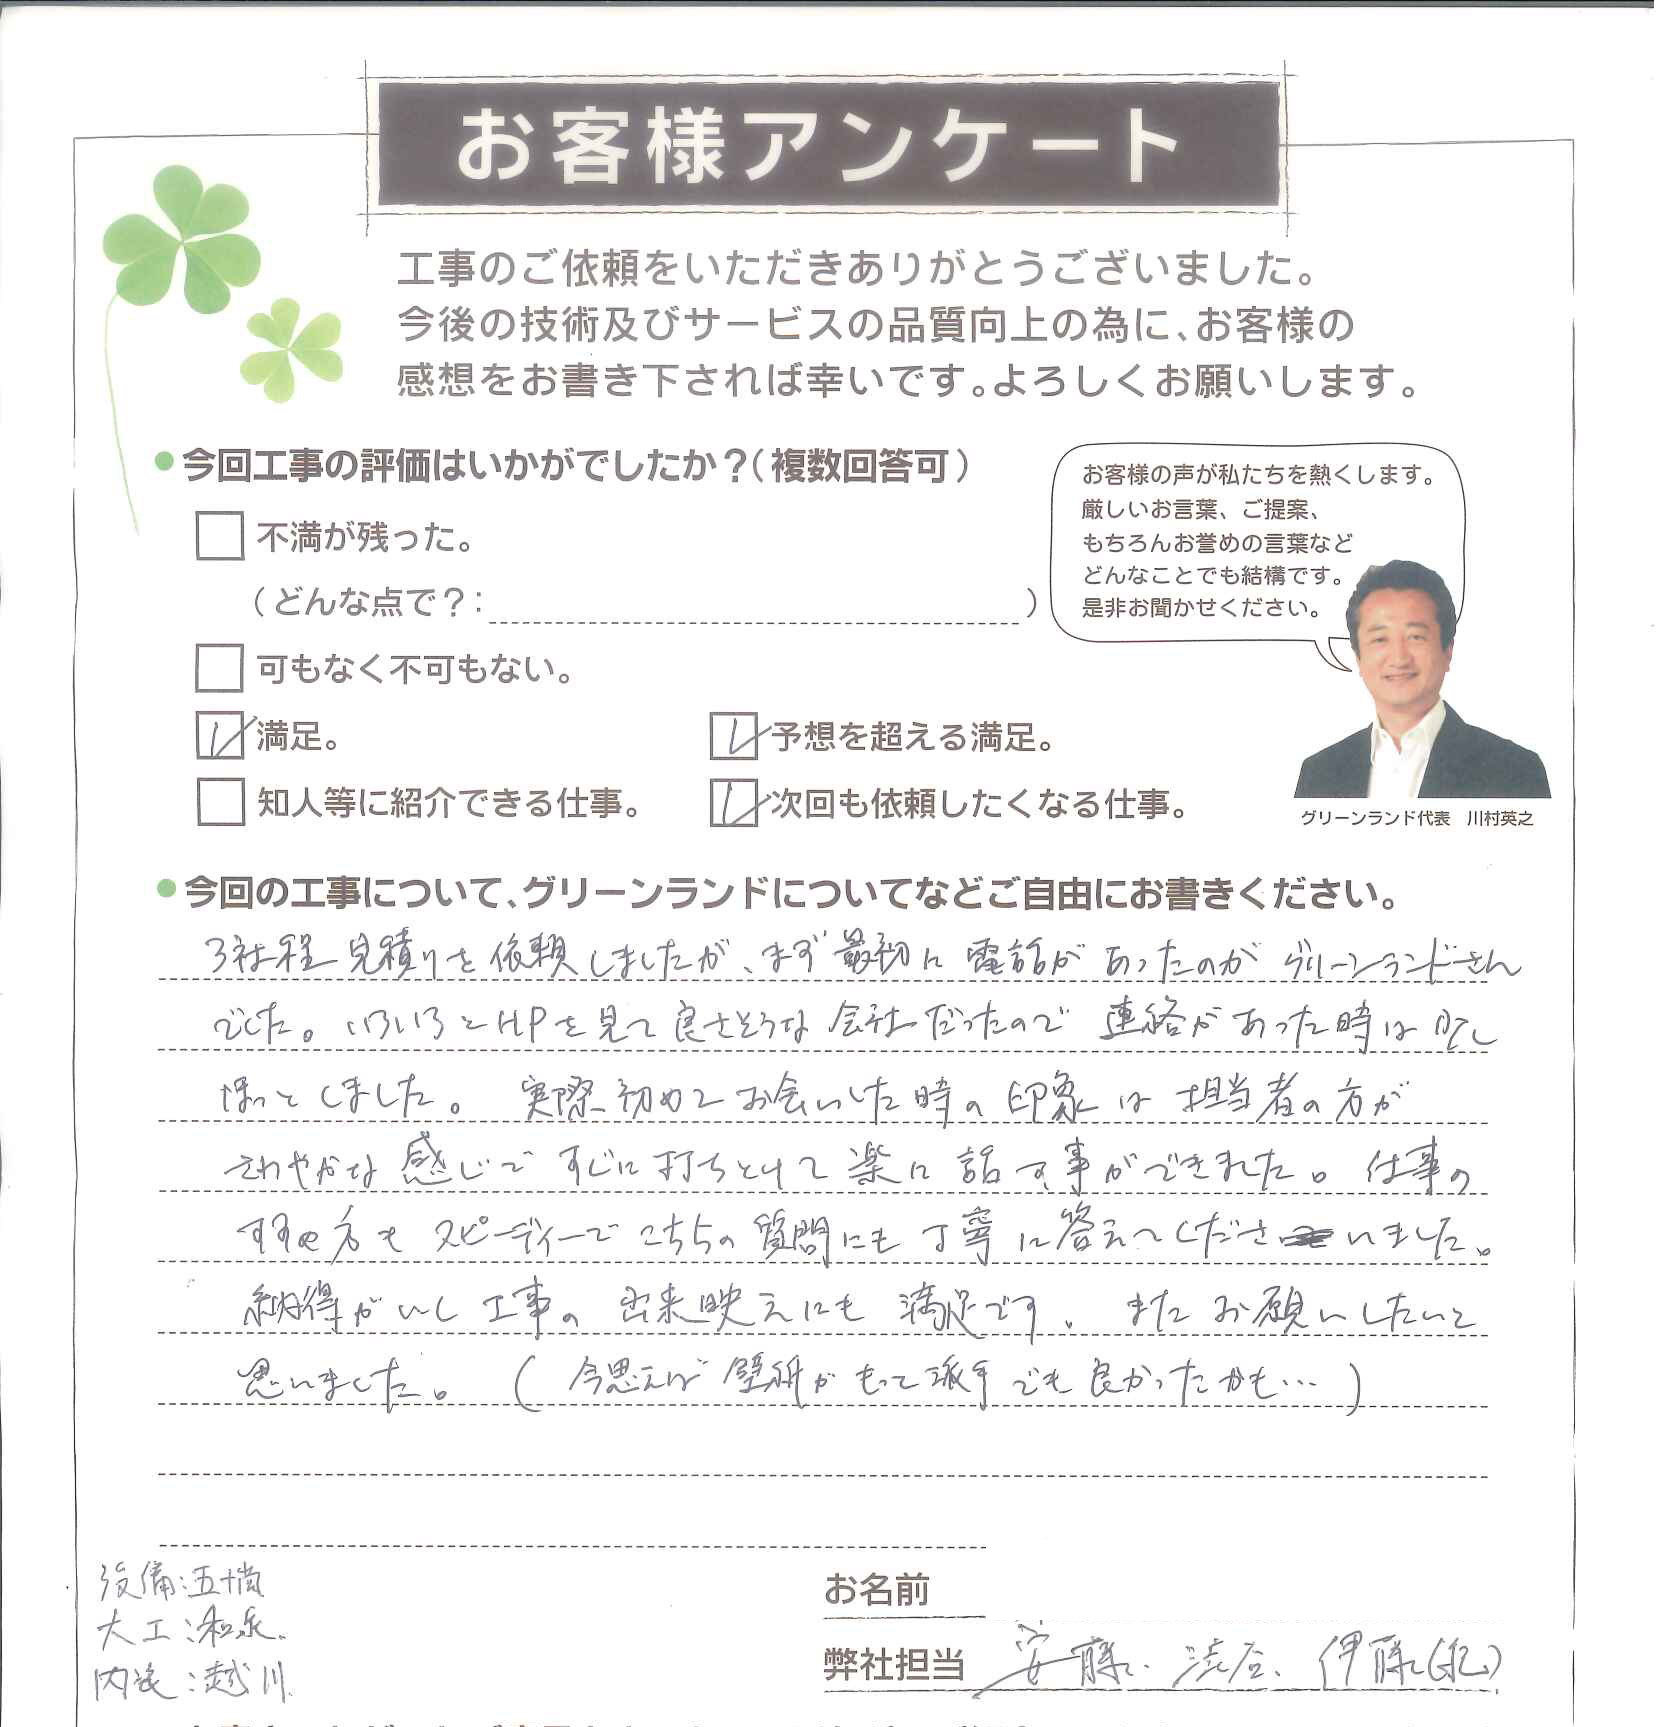 お客様アンケート
工事のご依頼をいただきありがとうございました。
今後の技術及びサービスの品質向上の為に、お客様の
感想をお書き下されば幸いです。よろしくお願いします。
今回工事の評価はいかがでしたか？（複数回答可）
不満が残った。
（どんな点で？： ）
可もなく不可もない。
満足。
予想を超える満足。
知人等に紹介できる仕事。
次回も依頼したくなる仕事。
お客様の声が私たちを熱くします。
厳しいお言葉、ご提案、
もちろんお誉めの言葉など
どんなことでも結構です。
是非お聞かせください。
グリーンランド代表　川村英之
今回の工事について、グリーンランドについてなどご自由にお書きください。
3社程見積りを依頼しましたが、まず最初に電話があったのがグリーンランドさん
でした。いろいろとHPを見て良さそうな会社だったので連絡があった時は少し
ほっとしました。実際初めてお会いした時の印象は担当者の方が
さわやかな感じですぐに打ちとけて楽に話す事ができました。仕事の
すすめ方もスピーディーでこちらの質問にも丁寧に答えてくださいました。
納得がいくし工事の出来映えにも満足です。またお願いしたいと
思いました。（今思えば壁紙がもっと派手でも良かったかも…）
設備：五十嵐
大工：和泉
内装：越川
お名前
弊社担当 安藤、渋谷、伊藤(紀)